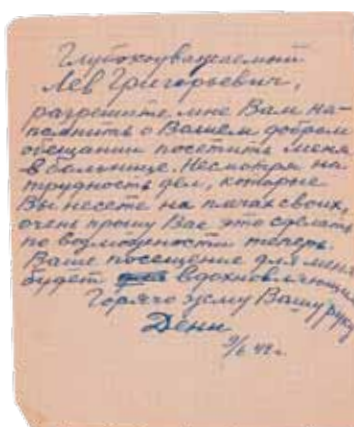 Глубокоуважаемый
Лев Григорьевич,
разрешите мне Вам на-
помнить о Вашем добром
обещании посетить меня
в больнице. Несмотря на
трудность дел, которые
Вы несете на плечах своих,
очень прошу Вас это сделать
по возможности теперь.
Ваше посещение для меня
будет вдохновляющим
Горячо жму Вашу руку
Денн
9/6 42 г.